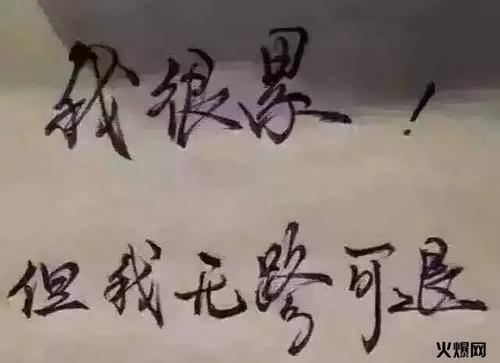 我很累！
但我无路可退
火爆网